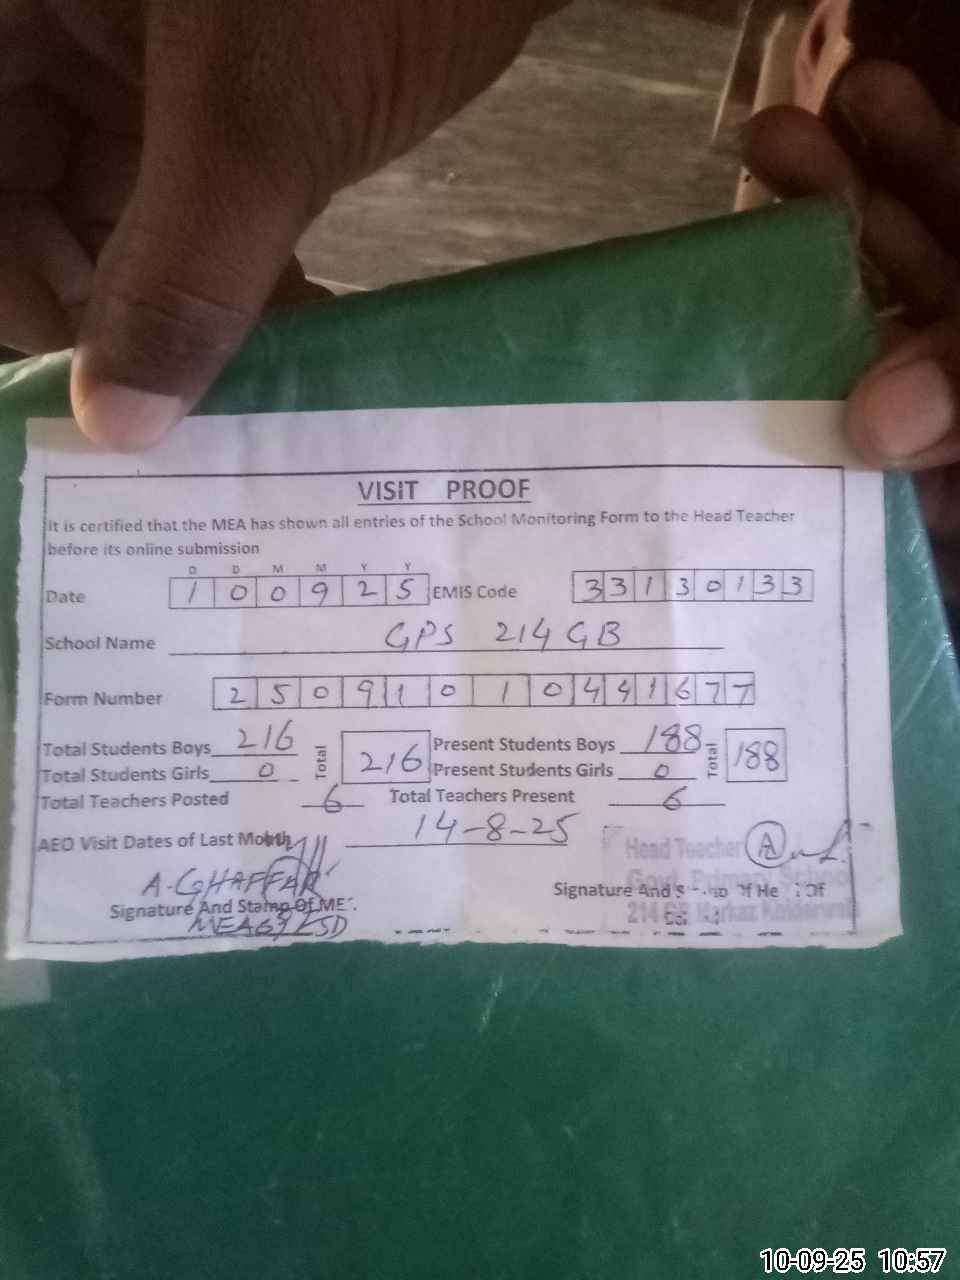 VISIT PROOF
It is certified that the MEA has shown all entries of the School Monitoring Form to the Head Teacher
before its online submission
D D M M Y Y
Date 1 0 0 9 2 5 EMIS Code 3 3 1 3 0 1 3 3
School Name GPS 214 GB
Form Number 2 5 0 9 1 0 1 0 4 4 1 6 7 7
Total Students Boys 216 Total 216 Present Students Boys 188 Total 188
Total Students Girls 0 Present Students Girls 0
Total Teachers Posted 6 Total Teachers Present 6
AEO Visit Dates of Last Month 14-8-25
Head Teacher
A. GHAFFAR
Govt. Primary School
Signature And Stamp Of ME
Signature And Of He Of
MEA
214 GB Markaz
10-09-25 10:57